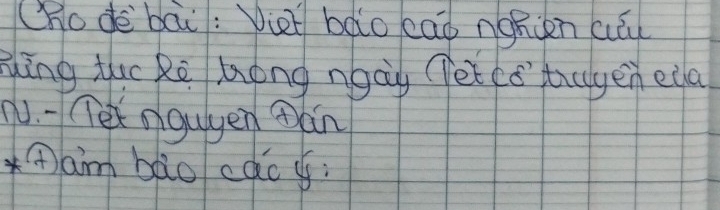 Cho đề bài: Viết báo cáo nghiên cứu
Phong tục lễ trong ngày Tết cổ truyền của
VN. - Tết nguyên Đán
* Đảm bảo các ý: